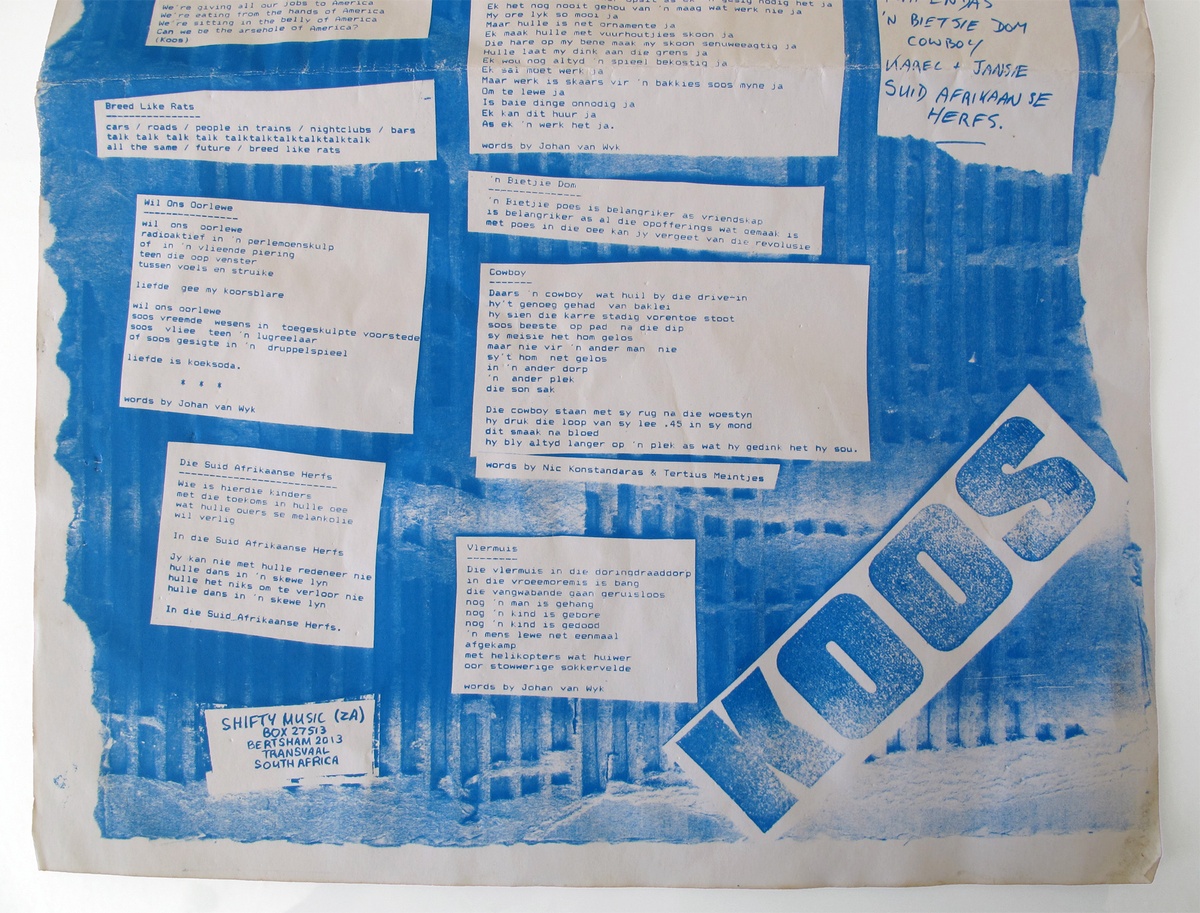 We're giving all our jobs to America
We're eating from the hands of America
We're sitting in the belly of America
Can we be the arsehole of America?
(Koos)
Breed Like Rats
cars / roads / people in trains / nightclubs / bars
talk talk talk talk talktalktalktalktalktalk
all the same / future / breed like rats
Wil Ons Oorlewe
wil ons oorlewe
radioaktief in 'n perlemoenskulp
of in 'n vlieende piering
teen die oop venster
tussen voels en struike
liefde gee my koorsblare
wil ons oorlewe
soos vreemde wesens in toegeskulpte voorstede
soos vliee teen 'n lugreelaar
of soos gesigte in 'n druppelspieel
liefde is koeksoda.
* * *
words by Johan van Wyk
Die Suid Afrikaanse Herfs
Wie is hierdie kinders
met die toekoms in hulle oee
wat hulle ouers se melankolie
wil verlig
In die Suid Afrikaanse Herfs
Jy kan nie met hulle redeneer nie
hulle dans in 'n skewe lyn
hulle het niks om te verloor nie
hulle dans in 'n skewe lyn
In die Suid Afrikaanse Herfs.
SHIFTY MUSIC (ZA)
BOX 27513
BERTSHAM 2013
TRANSVAAL
SOUTH AFRICA
Ek het nog nooit gehou van 'n maag wat werk nie ja
My ore lyk so mooi ja
Maar hulle is net ornamente ja
Ek maak hulle met vuurhoutjies skoon ja
Die hare op my bene maak my skoon senuweeagtig ja
Hulle laat my dink aan die grens ja
Ek wou nog altyd 'n spieel bekostig ja
Ek sal moet werk ja
Maar werk is skaars vir 'n bakkies soos myne ja
Om te lewe ja
Is baie dinge onnodig ja
Ek kan dit huur ja
As ek 'n werk het ja.
words by Johan van Wyk
'n Bietjie Dom
'n Bietjie poes is belangriker as vriendskap
is belangriker as al die opofferings wat gemaak is
met poes in die oee kan jy vergeet van die revolusie
Cowboy
Daars 'n cowboy wat huil by die drive-in
hy't genoeg gehad van baklei
hy sien die karre stadig vorentoe stoot
soos beeste op pad na die dip
sy meisie het hom gelos
maar nie vir 'n ander man nie
sy't hom net gelos
in 'n ander dorp
'n ander plek
die son sak
Die cowboy staan met sy rug na die woestyn
hy druk die loop van sy lee .45 in sy mond
dit smaak na bloed
hy bly altyd langer op 'n plek as wat hy gedink het hy sou.
words by Nic Konstandaras & Tertius Meintjes
Vlermuis
Die vlermuis in die doringdraaddorp
in die vroeemoremis is bang
die vangwabande gaan geruisloos
nog 'n man is gehang
nog 'n kind is gebore
nog 'n kind is gedood
'n mens lewe net eenmaal
afgekamp
met helikopters wat huiwer
oor stowwerige sokkervelde
words by Johan van Wyk
'N BIETSIE DOM
COWBOY
KAREL + JANSIE
SUID AFRIKAANSE
HERFS.
KOOS